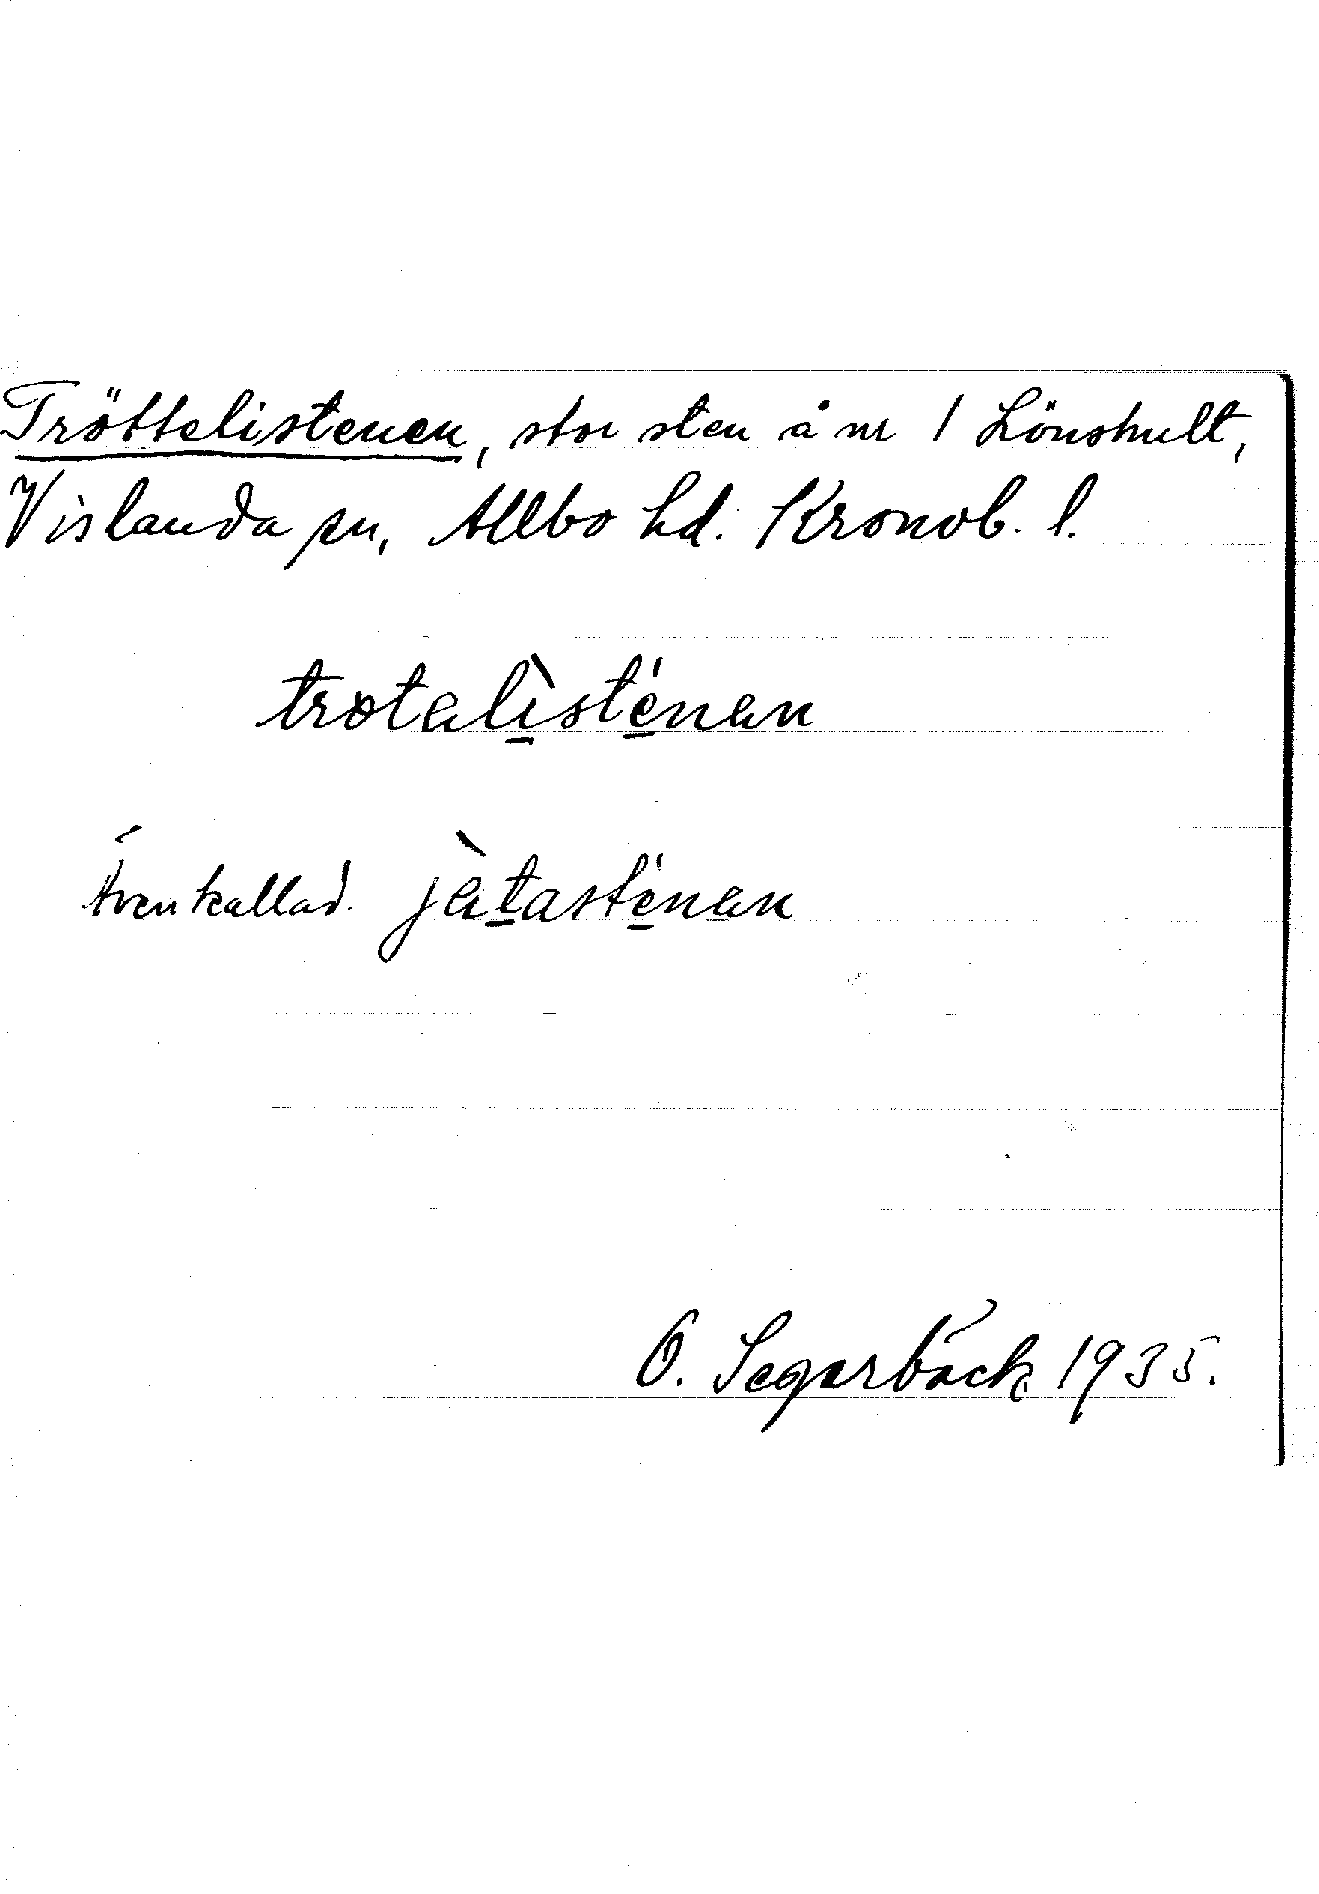 Tröttelistenen, stor sten å nr 1 Lönshult,
Vislanda sn, Allbo hd. Kronob. l.
trøtalìsténan
Även kallad. jàtasténan
O. Segerbäck 1935.